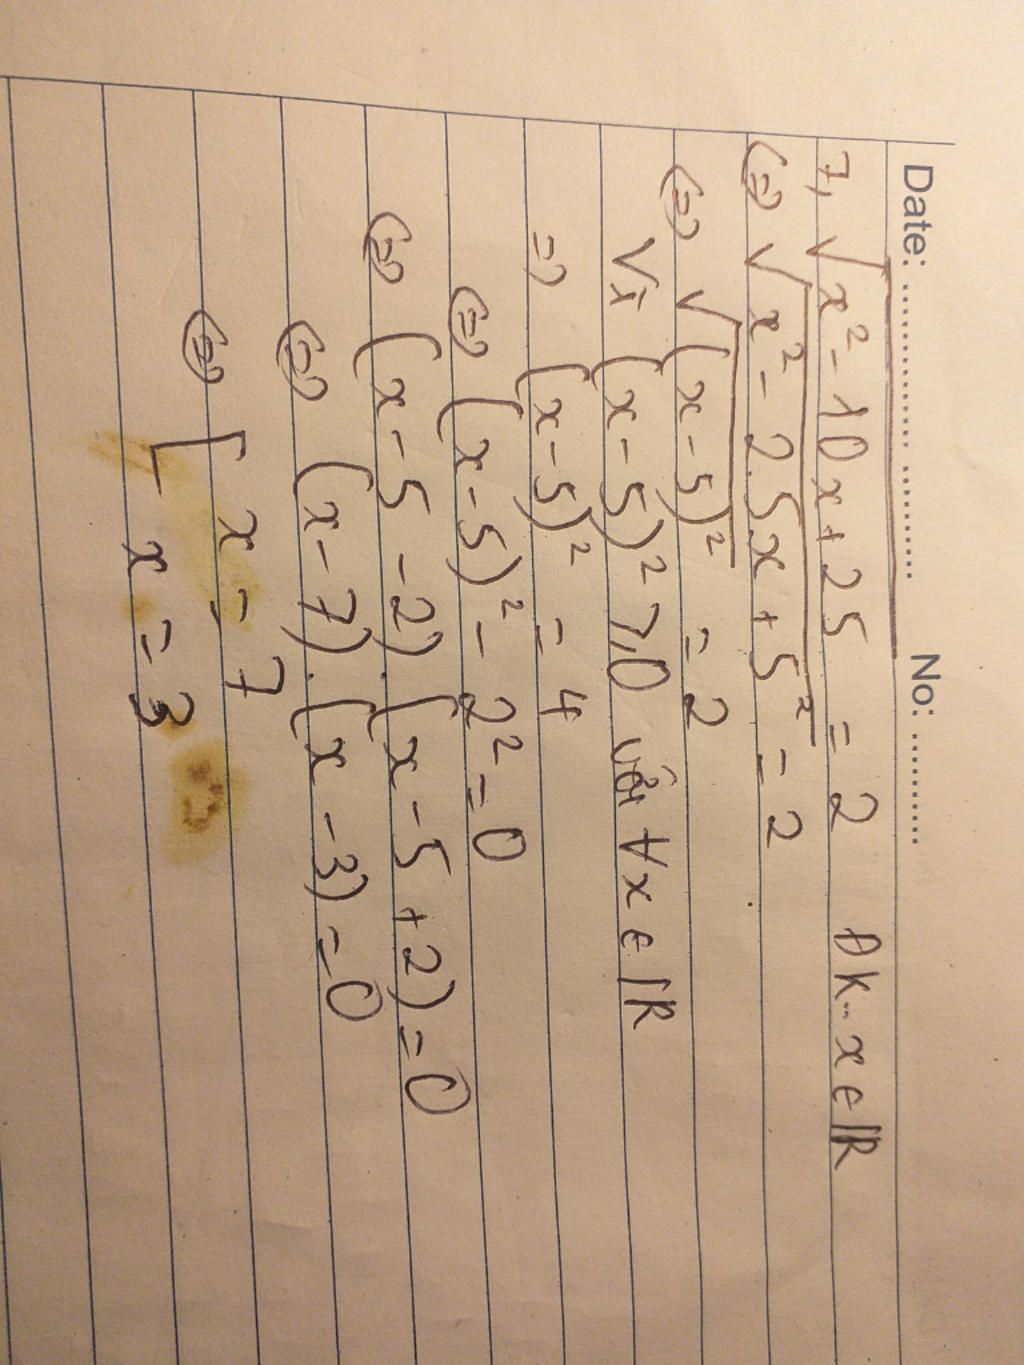 Date: .......................... No: ..........
7, √x² - 10x + 25 = 2 ĐK: x ∈ ℝ
(=) √x² - 2.5x + 5² = 2
(=) √(x - 5)² = 2
Vì (x - 5)² ≥ 0 với ∀x ∈ ℝ
=) (x - 5)² = 4
(=) (x - 5)² - 2² = 0
(=) (x - 5 - 2).(x - 5 + 2) = 0
(=) (x - 7).(x - 3) = 0
(=) [ x = 7
x = 3